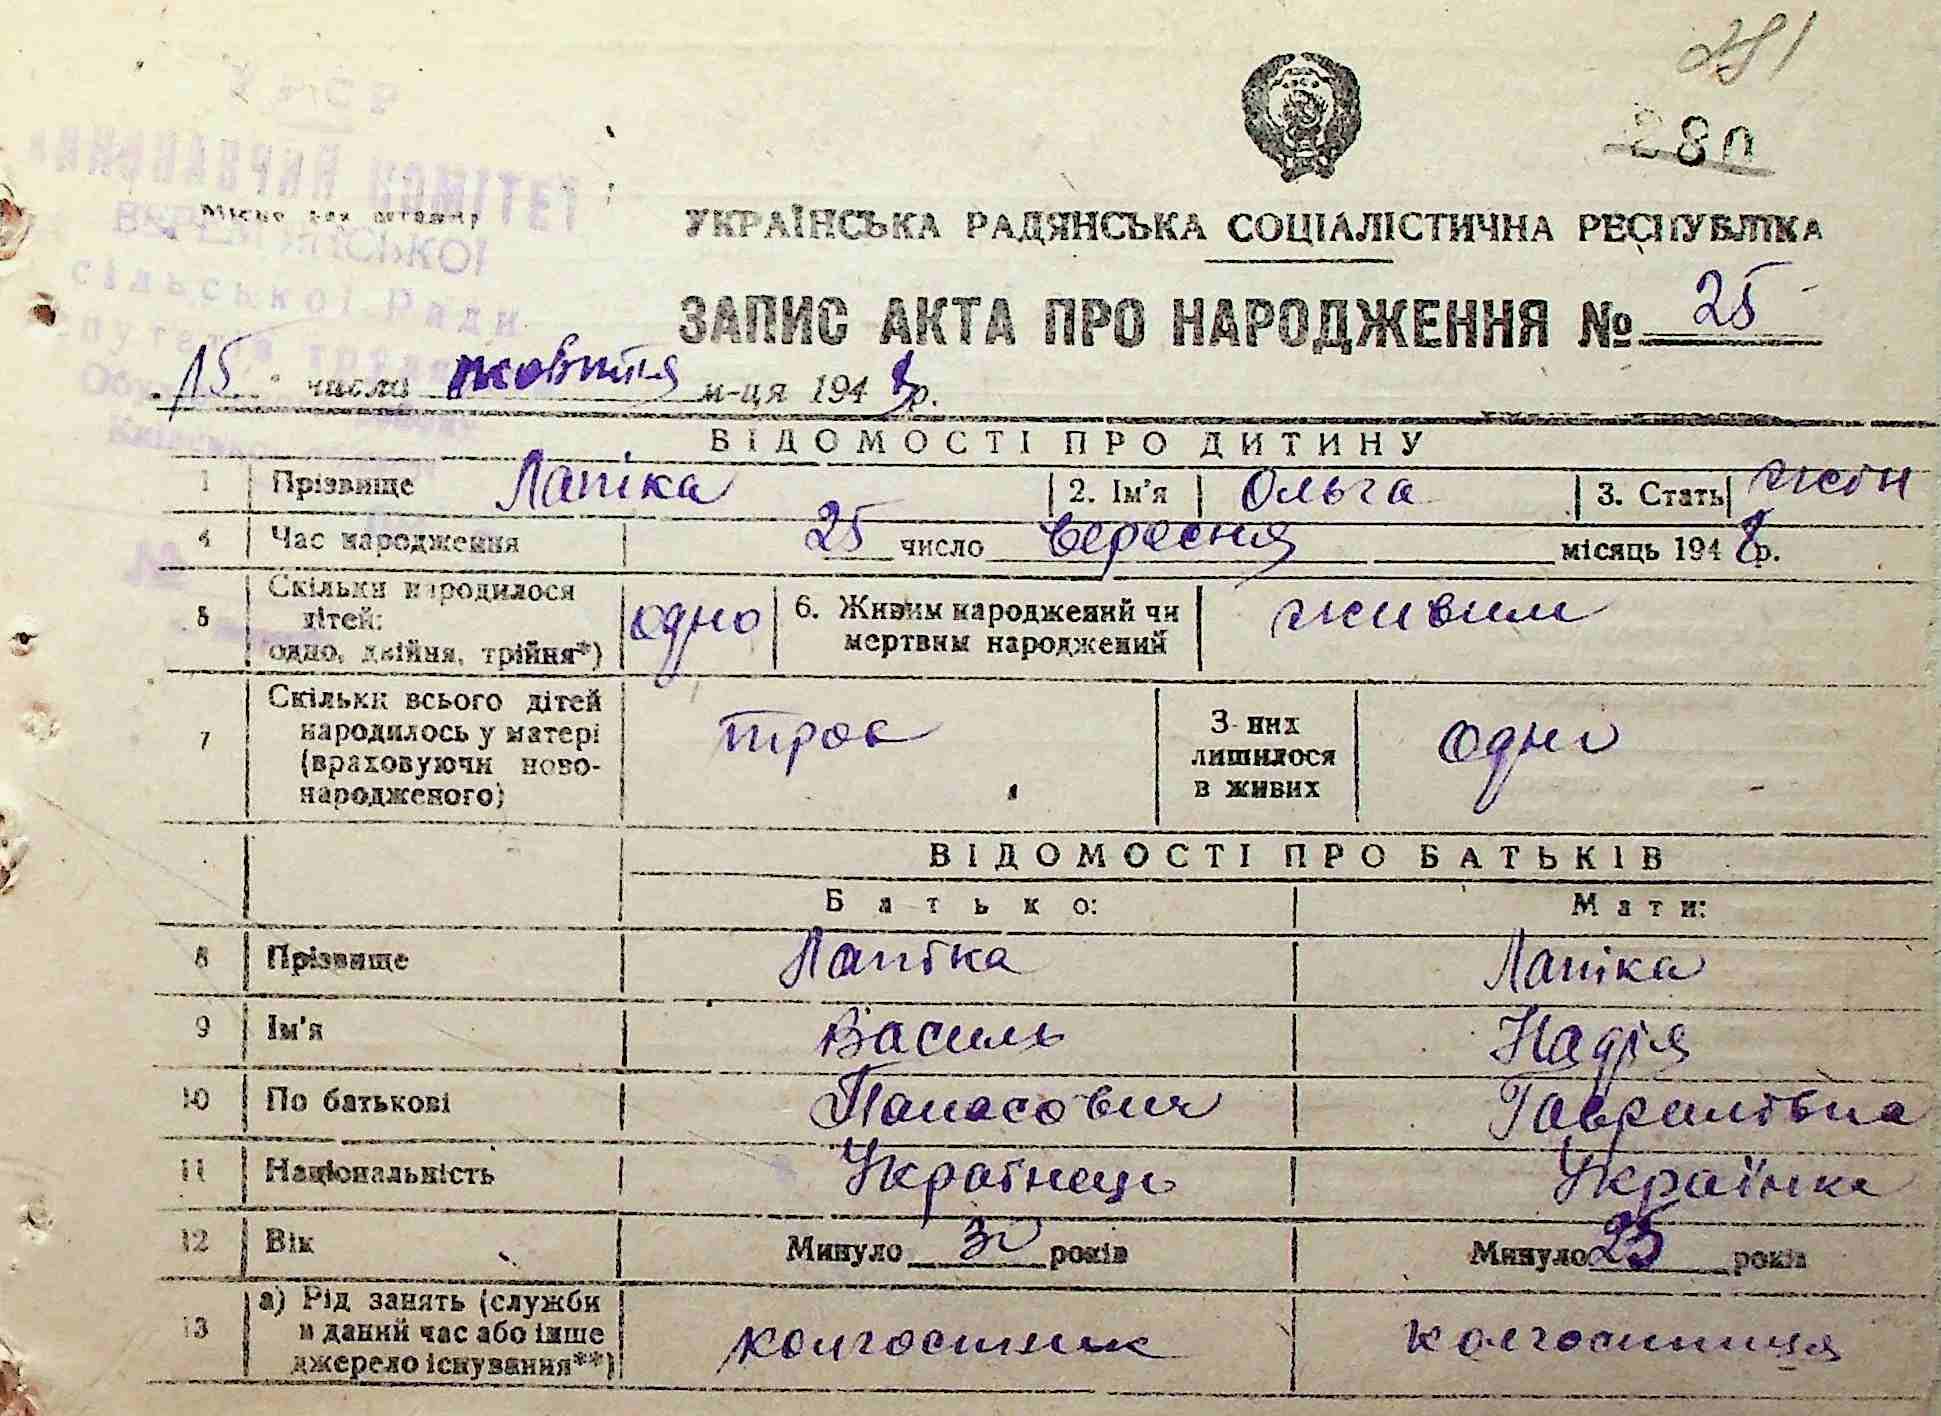 281
280
УРСР
ВИКОНАВЧИЙ КОМІТЕТ
Місце для штампу
сільської Ради
УКРАЇНСЬКА РАДЯНСЬКА СОЦІАЛІСТИЧНА РЕСПУБЛІКА
ЗАПИС АКТА ПРО НАРОДЖЕННЯ № 25
15 число жовтня м-ця 1948 р.
ВІДОМОСТІ ПРО ДИТИНУ
1 Прізвище Лапіка 2. Ім'я Ольга 3. Стать жін
4 Час народження 25 число вересня місяць 1948 р.
5 Скільки народилося дітей: одно, двійня, трійня*) одно 6. Живим народжений чи мертвим народжений живим
7 Скільки всього дітей народилось у матері (враховуючи новонародженого) троє З них лишилося в живих одно
ВІДОМОСТІ ПРО БАТЬКІВ
Батько: Мати:
8 Прізвище Лапіка Лапіка
9 Ім'я Василь Надія
10 По батькові Панасович Гаврилівна
11 Національність Українець Українка
12 Вік Минуло 30 років Минуло 25 років
13 а) Рід занять (служби в даний час або інше джерело існування**) колгоспник колгоспниця